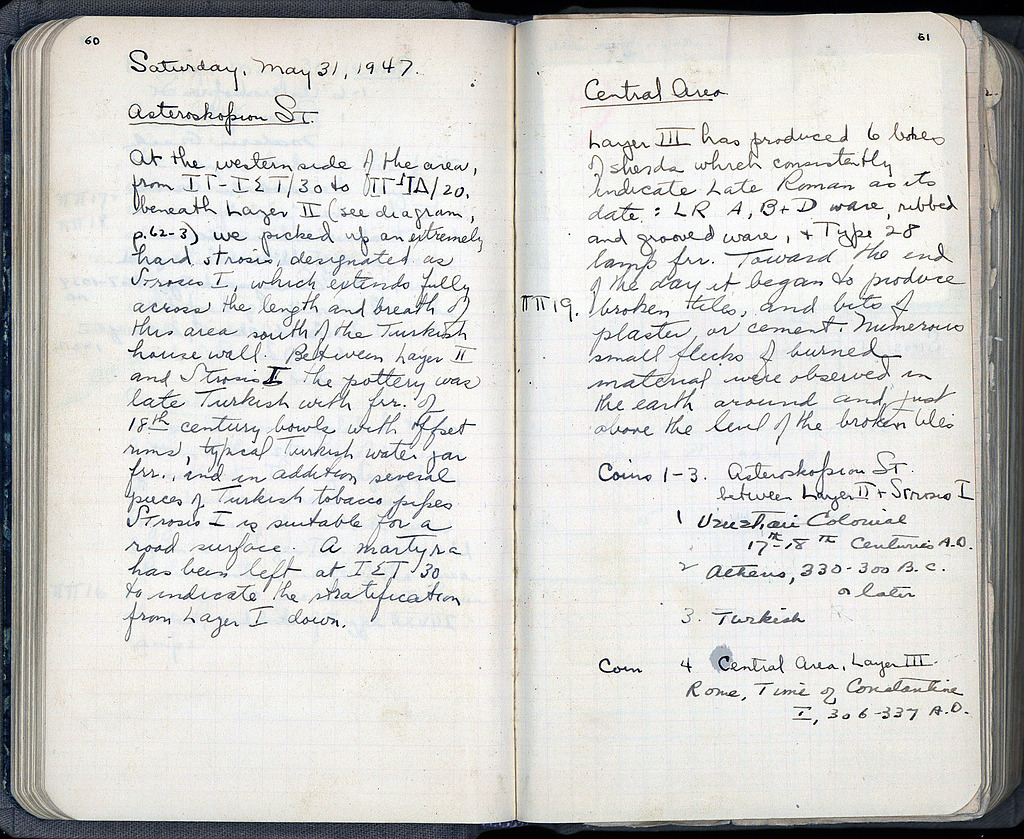 60
Saturday, May 31, 1947.
Asteroskopion St.
At the western side of the area,
from ΙΓ-ΙΣΤ/30 to ΙΓ-ΙΔ/20,
beneath Layer II (see diagram,
p.62-3) we picked up an extremely
hard strosis, designated as
Strosis I, which extends fully
across the length and breath of
this area south of the Turkish
house wall. Between Layer II
and Strosis I the pottery was
late Turkish with frr. of
18th century bowls with offset
rims, typical Turkish water jar
frr., and in addition several
pieces of Turkish tobacco pipes
Strosis I is suitable for a
road surface. A martyra
has been left at ΙΣΤ/30
to indicate the stratification
from Layer I down.
61
Central Area
Layer III has produced 6 boxes
of sherds which consistently
indicate Late Roman as its
date: LR A, B + D ware, ribbed
and grooved ware, + Type 28
lamp frr. Toward the end
of the day it began to produce
ΠΠ 19. broken tiles, and bits of
plaster, or cement. Numerous
small flecks of burned
material were observed in
the earth around and just
above the level of the broken tiles
Coins 1-3. Asteroskopion St.
between Layer II + Strosis I
1 Venetian Colonial
17th-18th Centuries A.D.
2 Athens, 330-300 B.C.
or later
3. Turkish
Coin 4 Central Area, Layer III
Rome, Time of Constantine
I, 306-337 A.D.